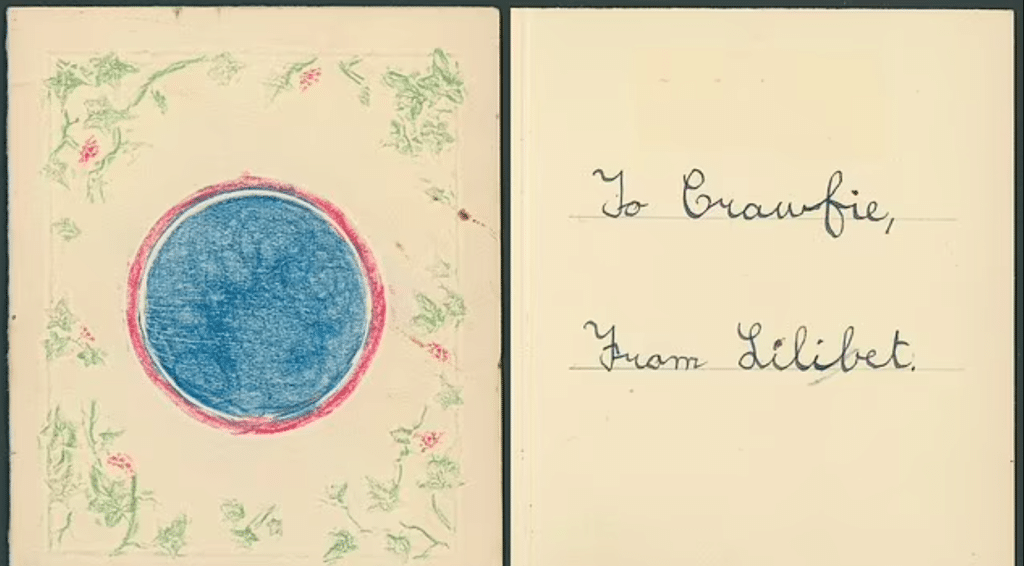 To Crawfie,
From Lilibet.